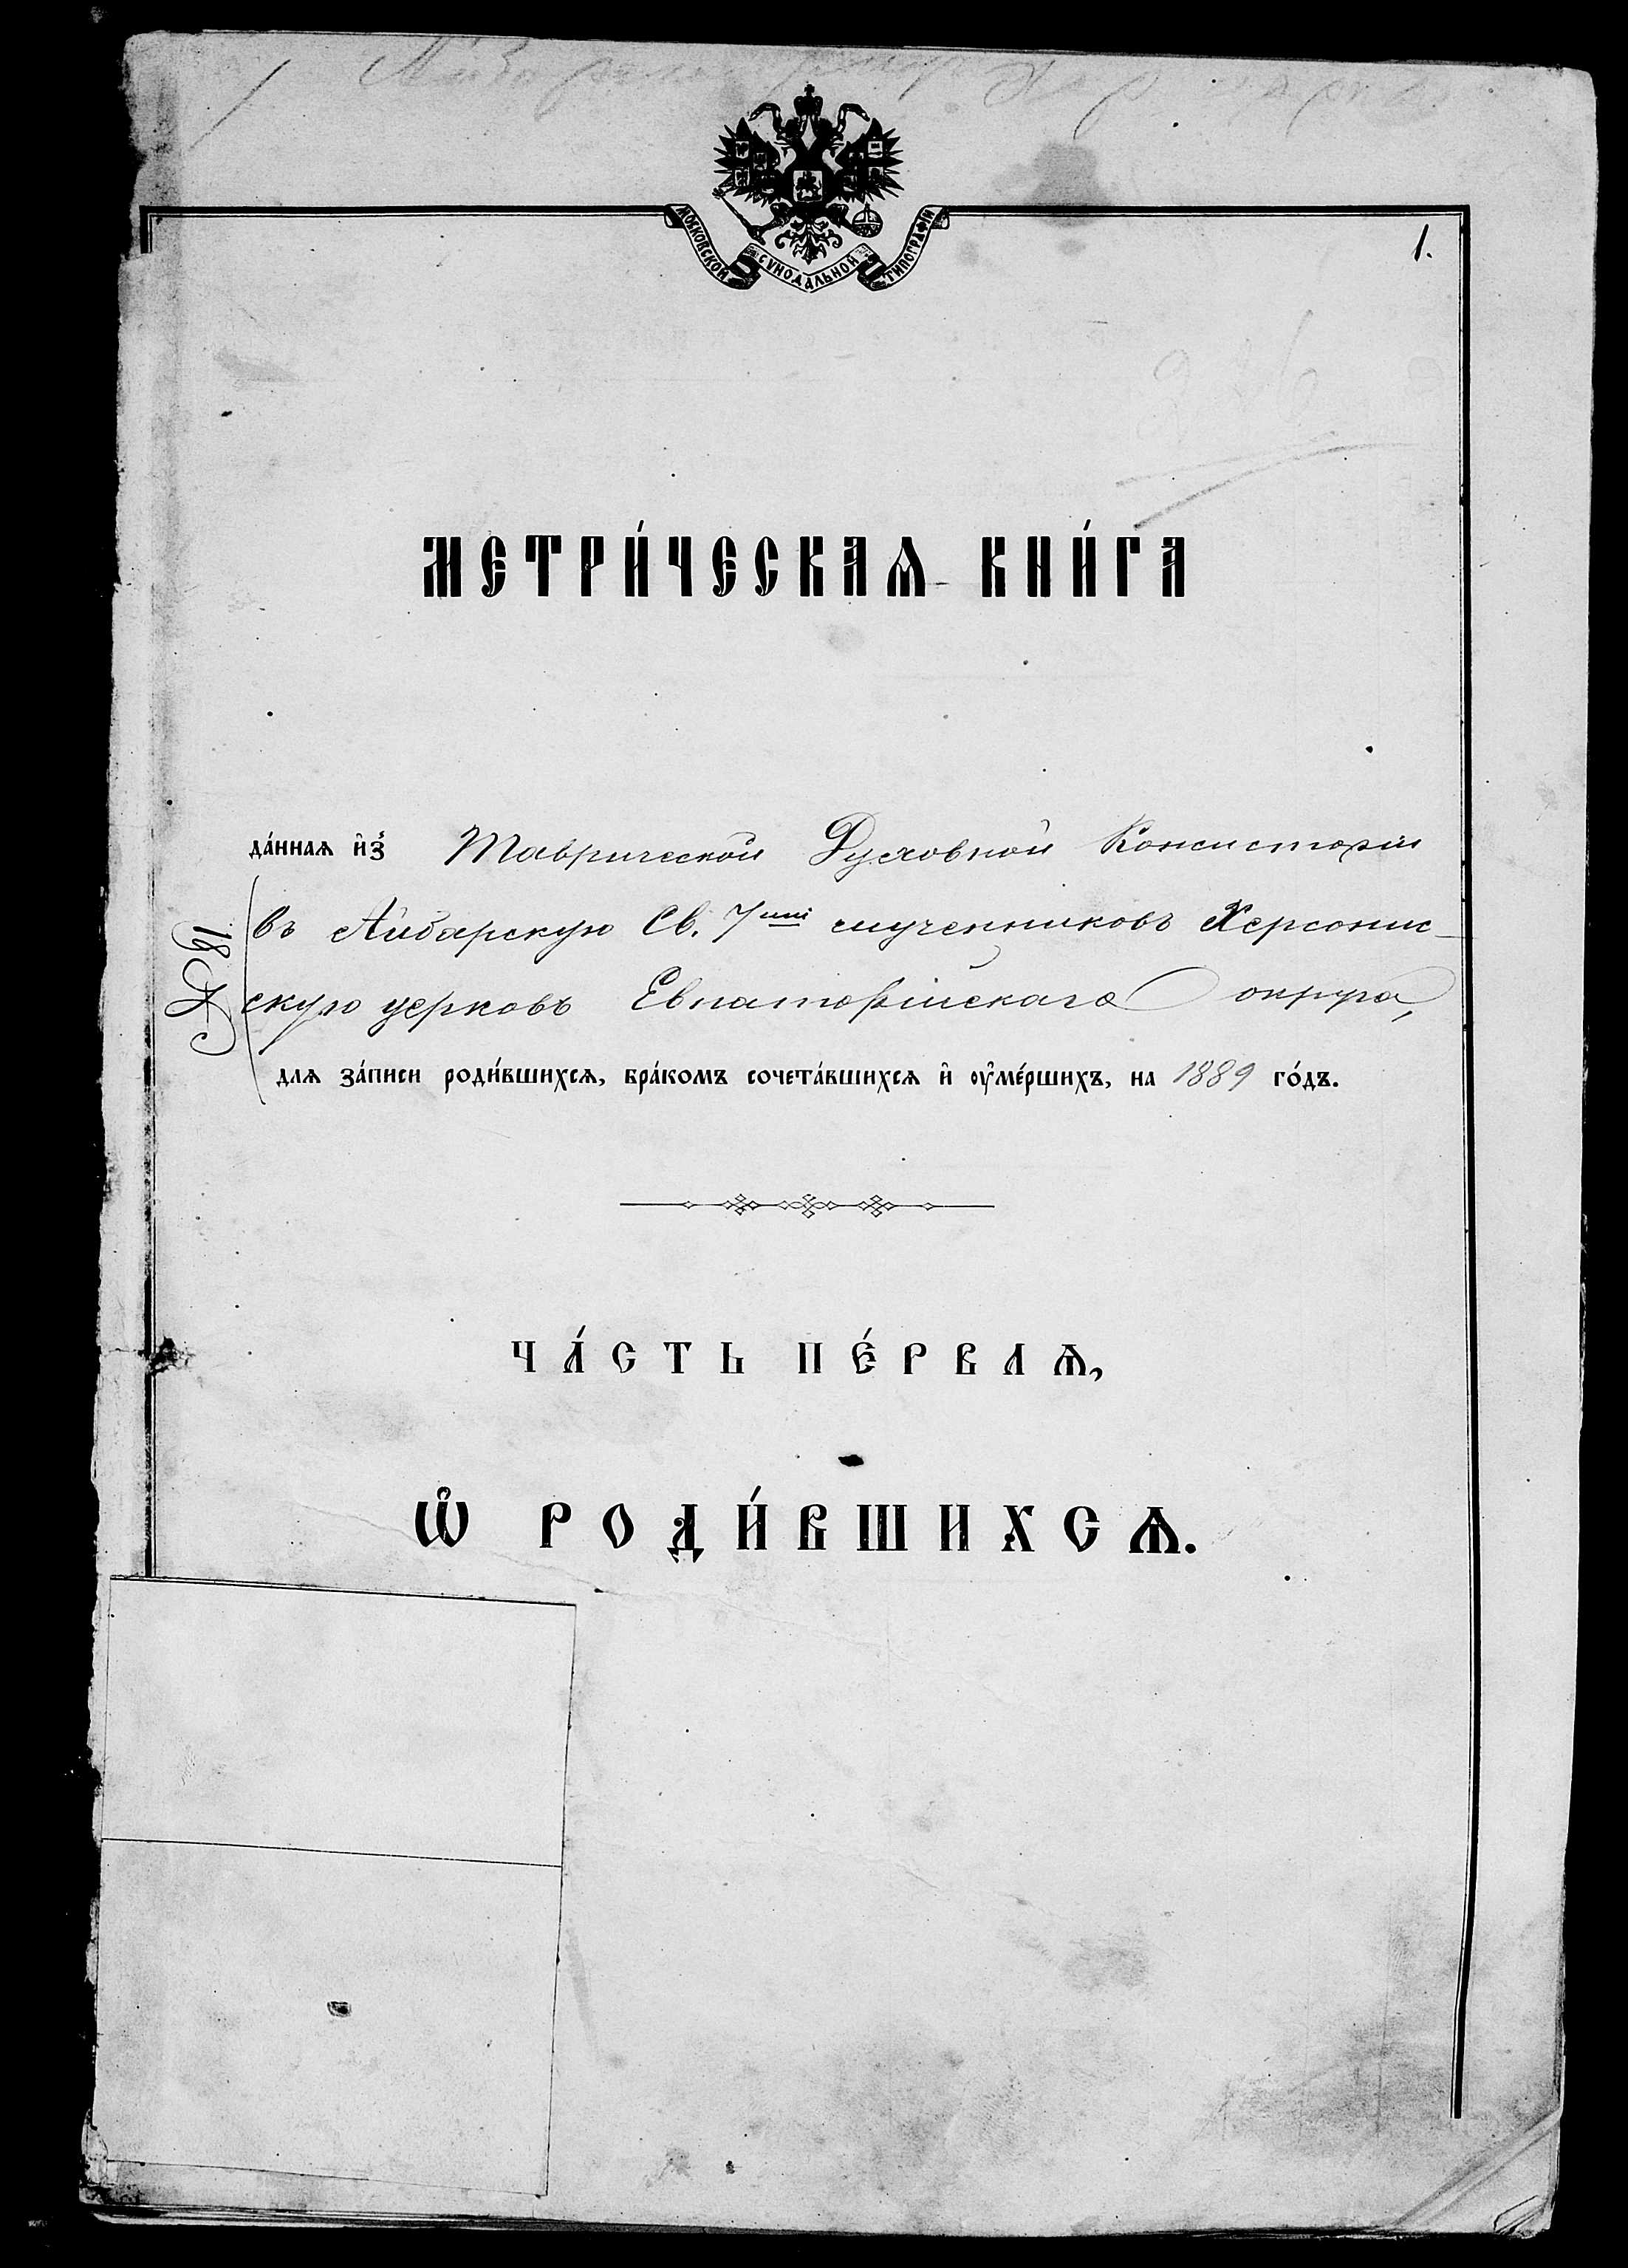 МОСКОВСКОЙ СѴНОДАЛЬНОЙ ТИПОГРАФІИ
1.
МЕТРИ́ЧЕСКАѦ КНИ́ГА
да́ннаѧ и҆з̾ Таврической Духовной Консисторіи
въ Айбарскую Св. 7ми мучениковъ Херсонис-
скую церковь Евпаторійскаго округа,
длѧ за́писи роди́вшихсѧ, бра́комъ сочета́вшихсѧ и҆ ѹ҆ме́ршихъ, на 1889 го́дъ.
ЧА́СТЬ ПЕ́РВАѦ,
Ѡ҆ РОДИ́ВШИХСѦ.